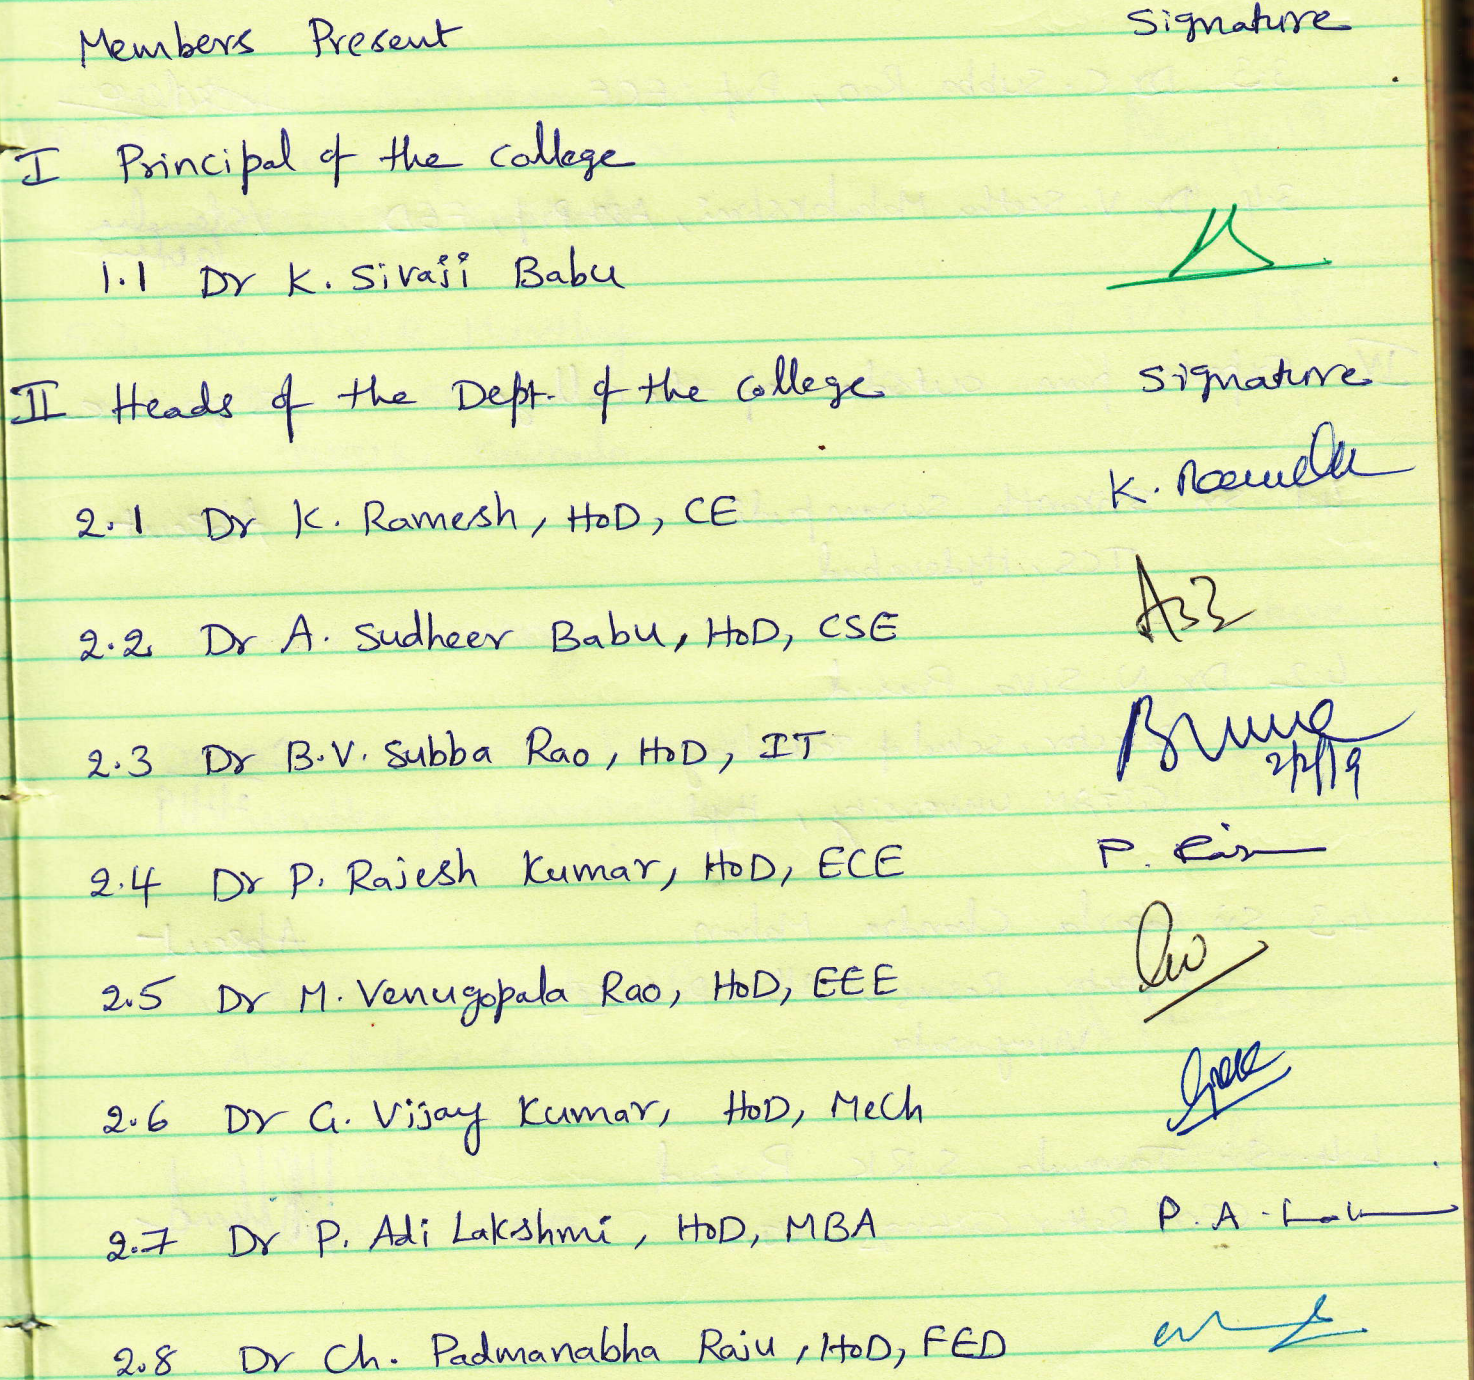 Members Present Signature
I Principal of the College
1.1 Dr K. Sivaji Babu
II Heads of the Dept. of the College Signature
2.1 Dr K. Ramesh, HoD, CE K.
2.2 Dr A. Sudheer Babu, HoD, CSE
2.3 Dr B.V. Subba Rao, HoD, IT
2/2/19
2.4 Dr P. Rajesh Kumar, HoD, ECE P.
2.5 Dr M. Venugopala Rao, HoD, EEE
2.6 Dr G. Vijay Kumar, HoD, MeCh
2.7 Dr P. Adi Lakshmi, HoD, MBA P. A.
2.8 Dr Ch. Padmanabha Raju, HoD, FED